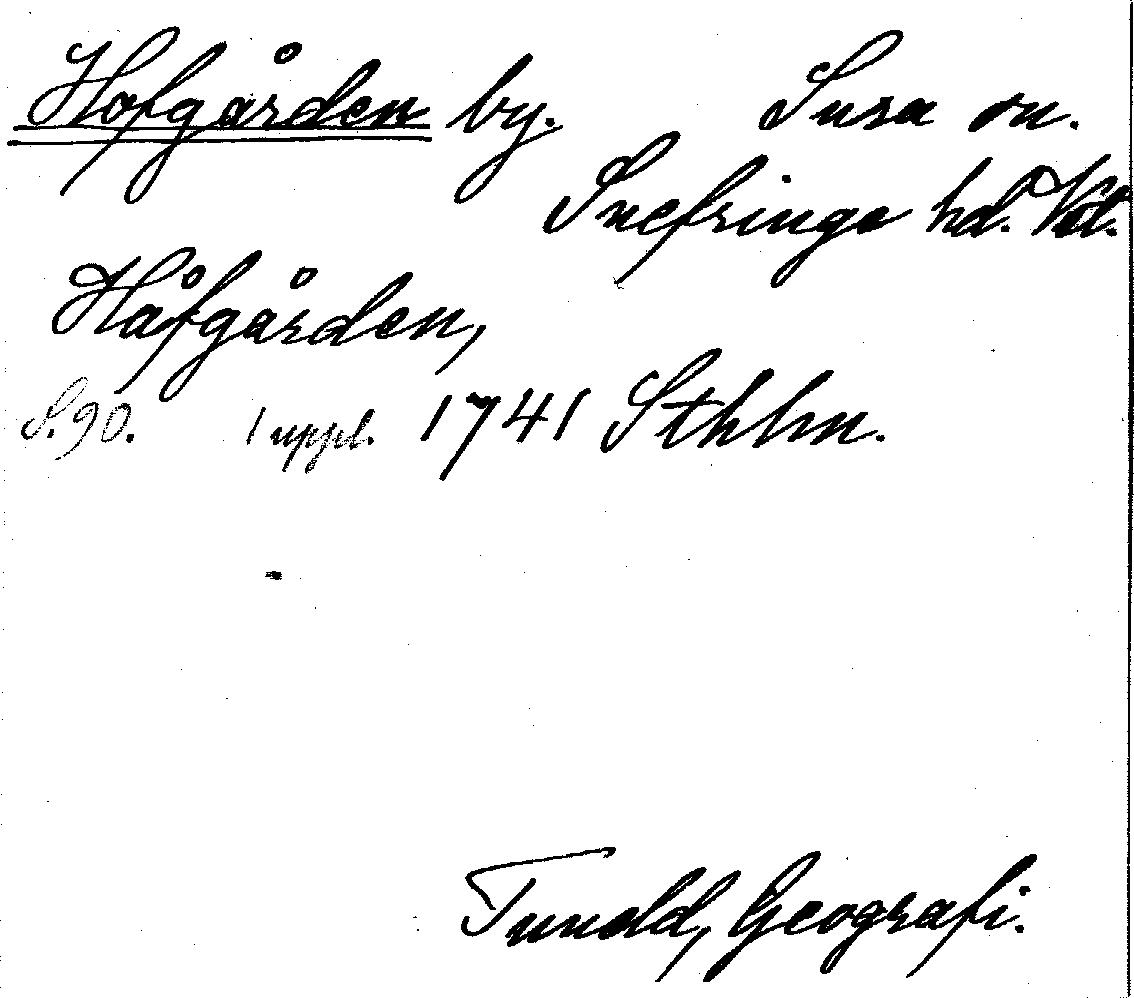 Hofgården by. Sura sn.
Snefringe hd. Vstl.
Håfgården,
S. 90. 1 uppl. 1741 Sthlm.
Tuneld, Geografi.